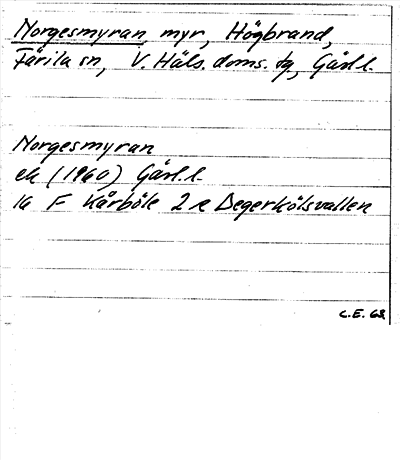 Norgesmyran myr, Högbrand,
Färila sn, V. Häls. doms. tg, Gävl. l.
Norgesmyran
ek (1960) Gävl. l.
16 F Kårböle 2 e Degerkölsvallen
C.E. 68.